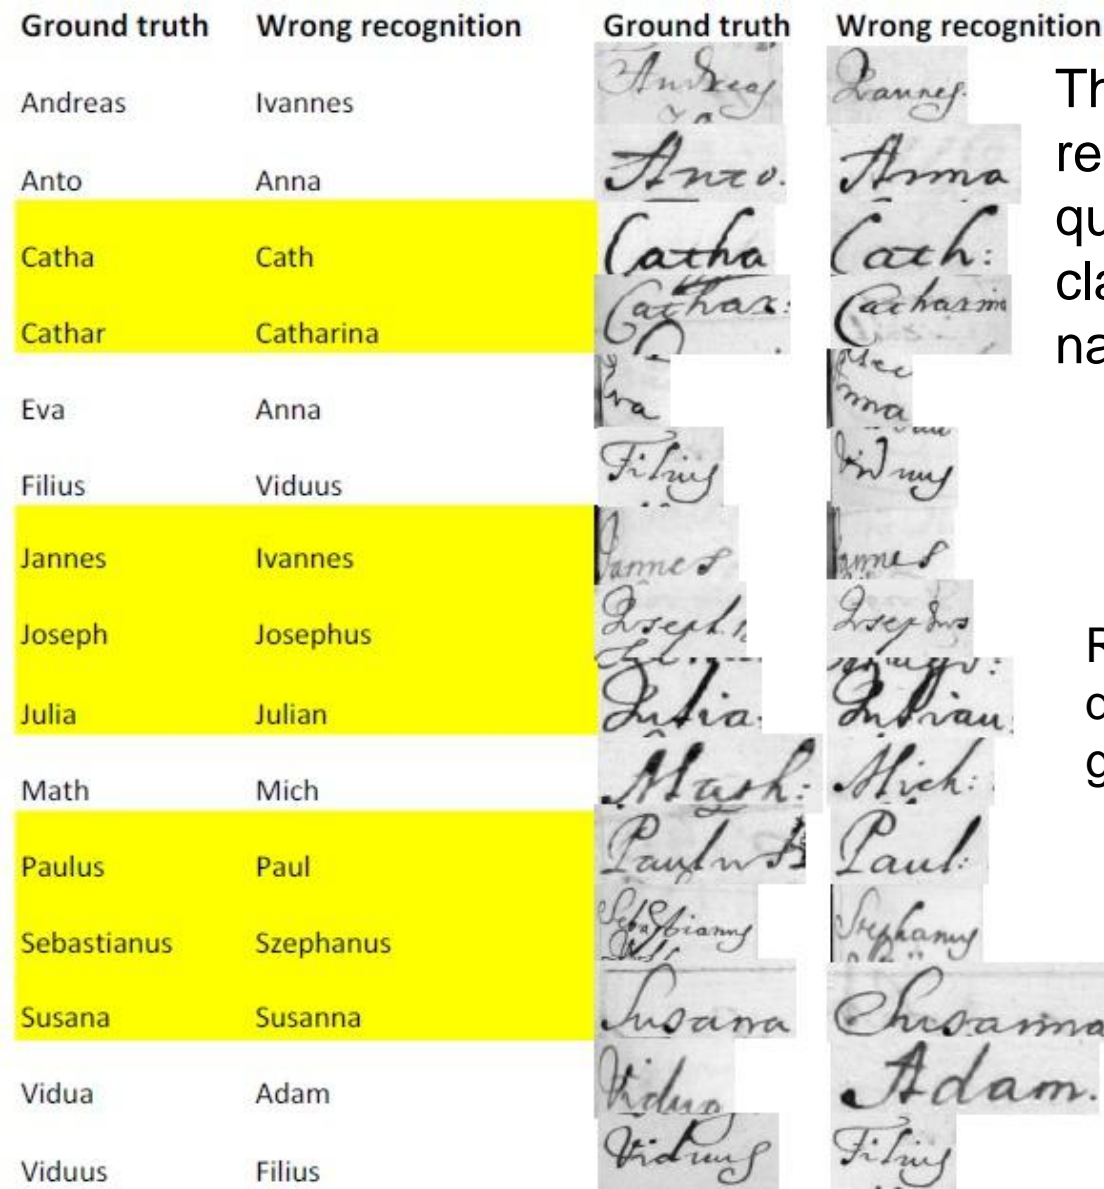 Ground truth Wrong recognition Ground truth Wrong recognition
Andreas Ivannes Andreas Ioannes.
Anto Anna Anto. Anna
Catha Cath Catha Cath:
Cathar Catharina Cathar: Catharina
Eva Anna Eva Anna
Filius Viduus Filius Viduus
Jannes Ivannes Jannes Jannes
Joseph Josephus Joseph Josephus
Julia Julian Julia. Julian.
Math Mich Math: Mich:
Paulus Paul Paulus Paul:
Sebastianus Szephanus Sebastianus Stephanus
Susana Susanna Susana Susanna
Vidua Adam Vidua Adam.
Viduus Filius Viduus Filius
Th
re
qu
cla
na
R
g